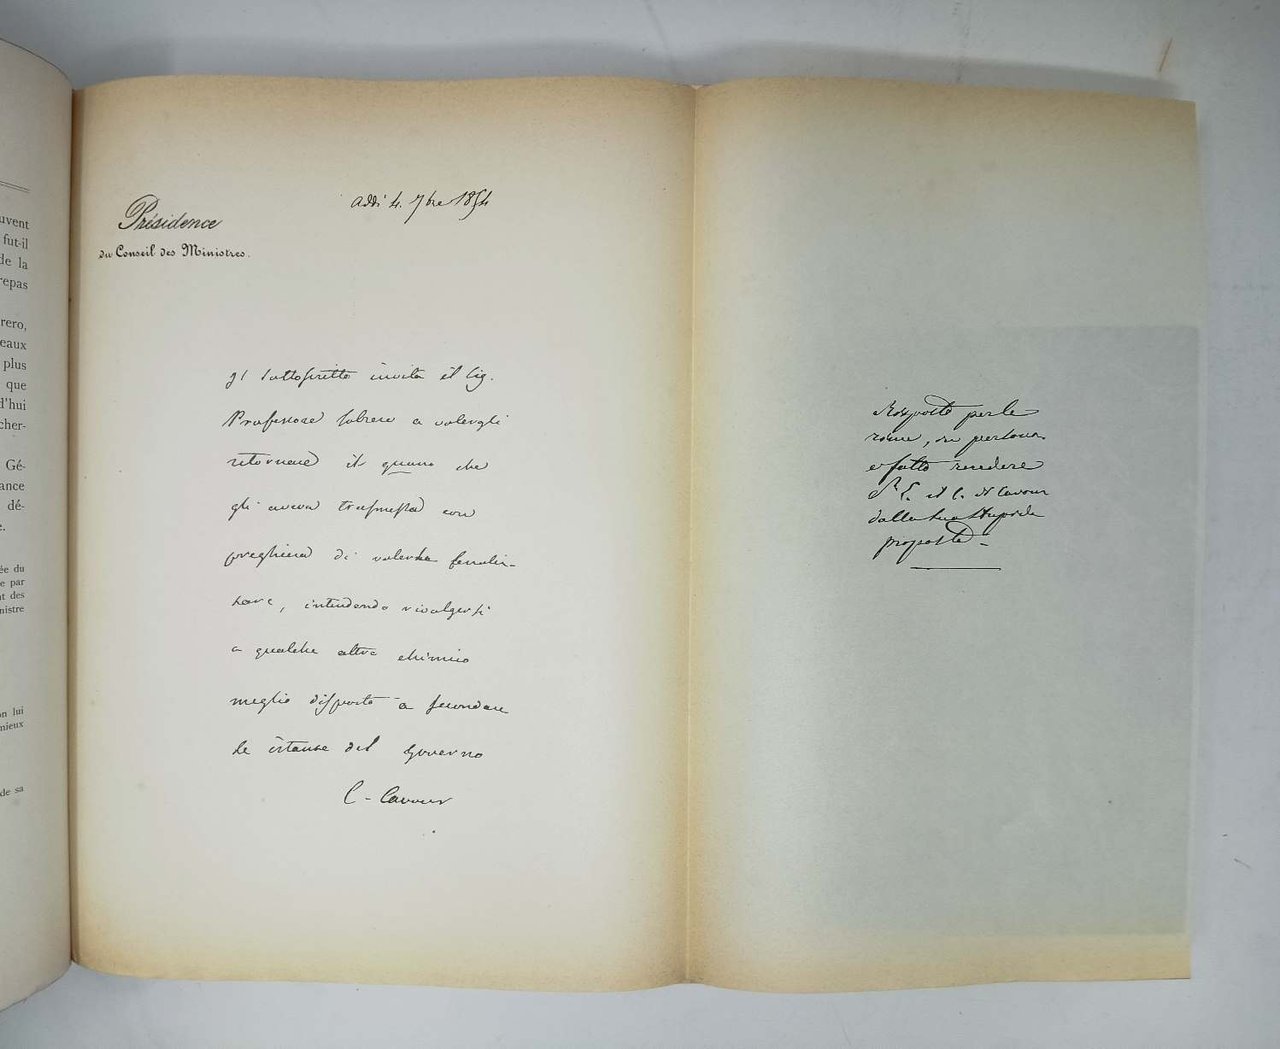 uvent
fut-il
de la
repas
rero,
eaux
plus
que
d'hui
cher-
Gé-
ance
dé-
e.
ée du
e par
nt des
nistre
on lui
mieux
de sa
Présidence
du Conseil des Ministres.
Addi 4. 7bre 1854
Il sottoscritto invita il Sig.
Professore Sobrero a volergli
ritornare il guano che
gli aveva trasmesso con
preghiera di
, intendendo rivolgersi
a qualche altro chimico
meglio disposto a secondare
le istanze del Governo
C. Cavour
Risposto per le
rime, di persona
e fatto recedere
S. E. il C. di Cavour
dalla sua stupida
proposta -